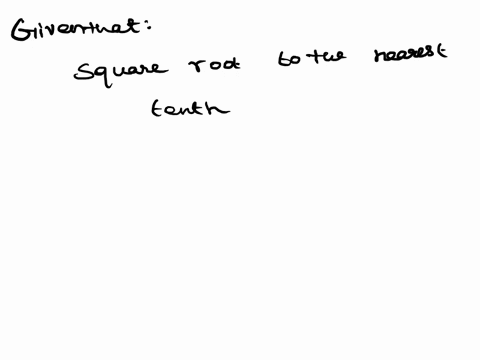 Given that:
Square root to the nearest
tenth